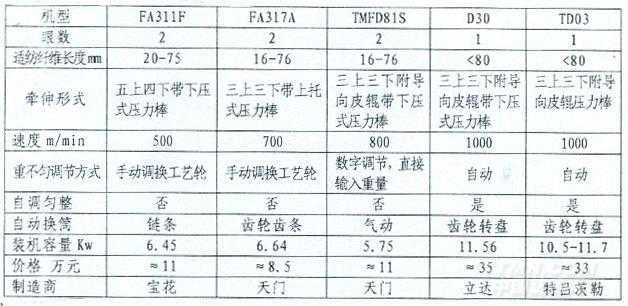 机型 FA311F FA317A TMFD81S D30 TD03
眼数 2 2 2 1 1
适纺纤维长度mm 20-75 16-76 16-76 <80 <80
牵伸形式 五上四下带下压式压力棒 三上三下带上托式压力棒 三上三下附导向皮辊带下压式压力棒 三上三下附导向皮辊带下压式压力棒 三上三下附导向皮辊带下压式压力棒
速度 m/min 500 700 800 1000 1000
重不匀调节方式 手动调换工艺轮 手动调换工艺轮 数字调节,直接输入重量 自动 自动
自调匀整 否 否 否 是 是
自动换筒 链条 齿轮齿条 气动 齿轮转盘 齿轮转盘
装机容量 Kw 6.45 6.64 5.75 11.56 10.5-11.7
价格 万元 ≈11 ≈8.5 ≈11 ≈35 ≈33
制造商 宝花 天门 天门 立达 特吕茨勒